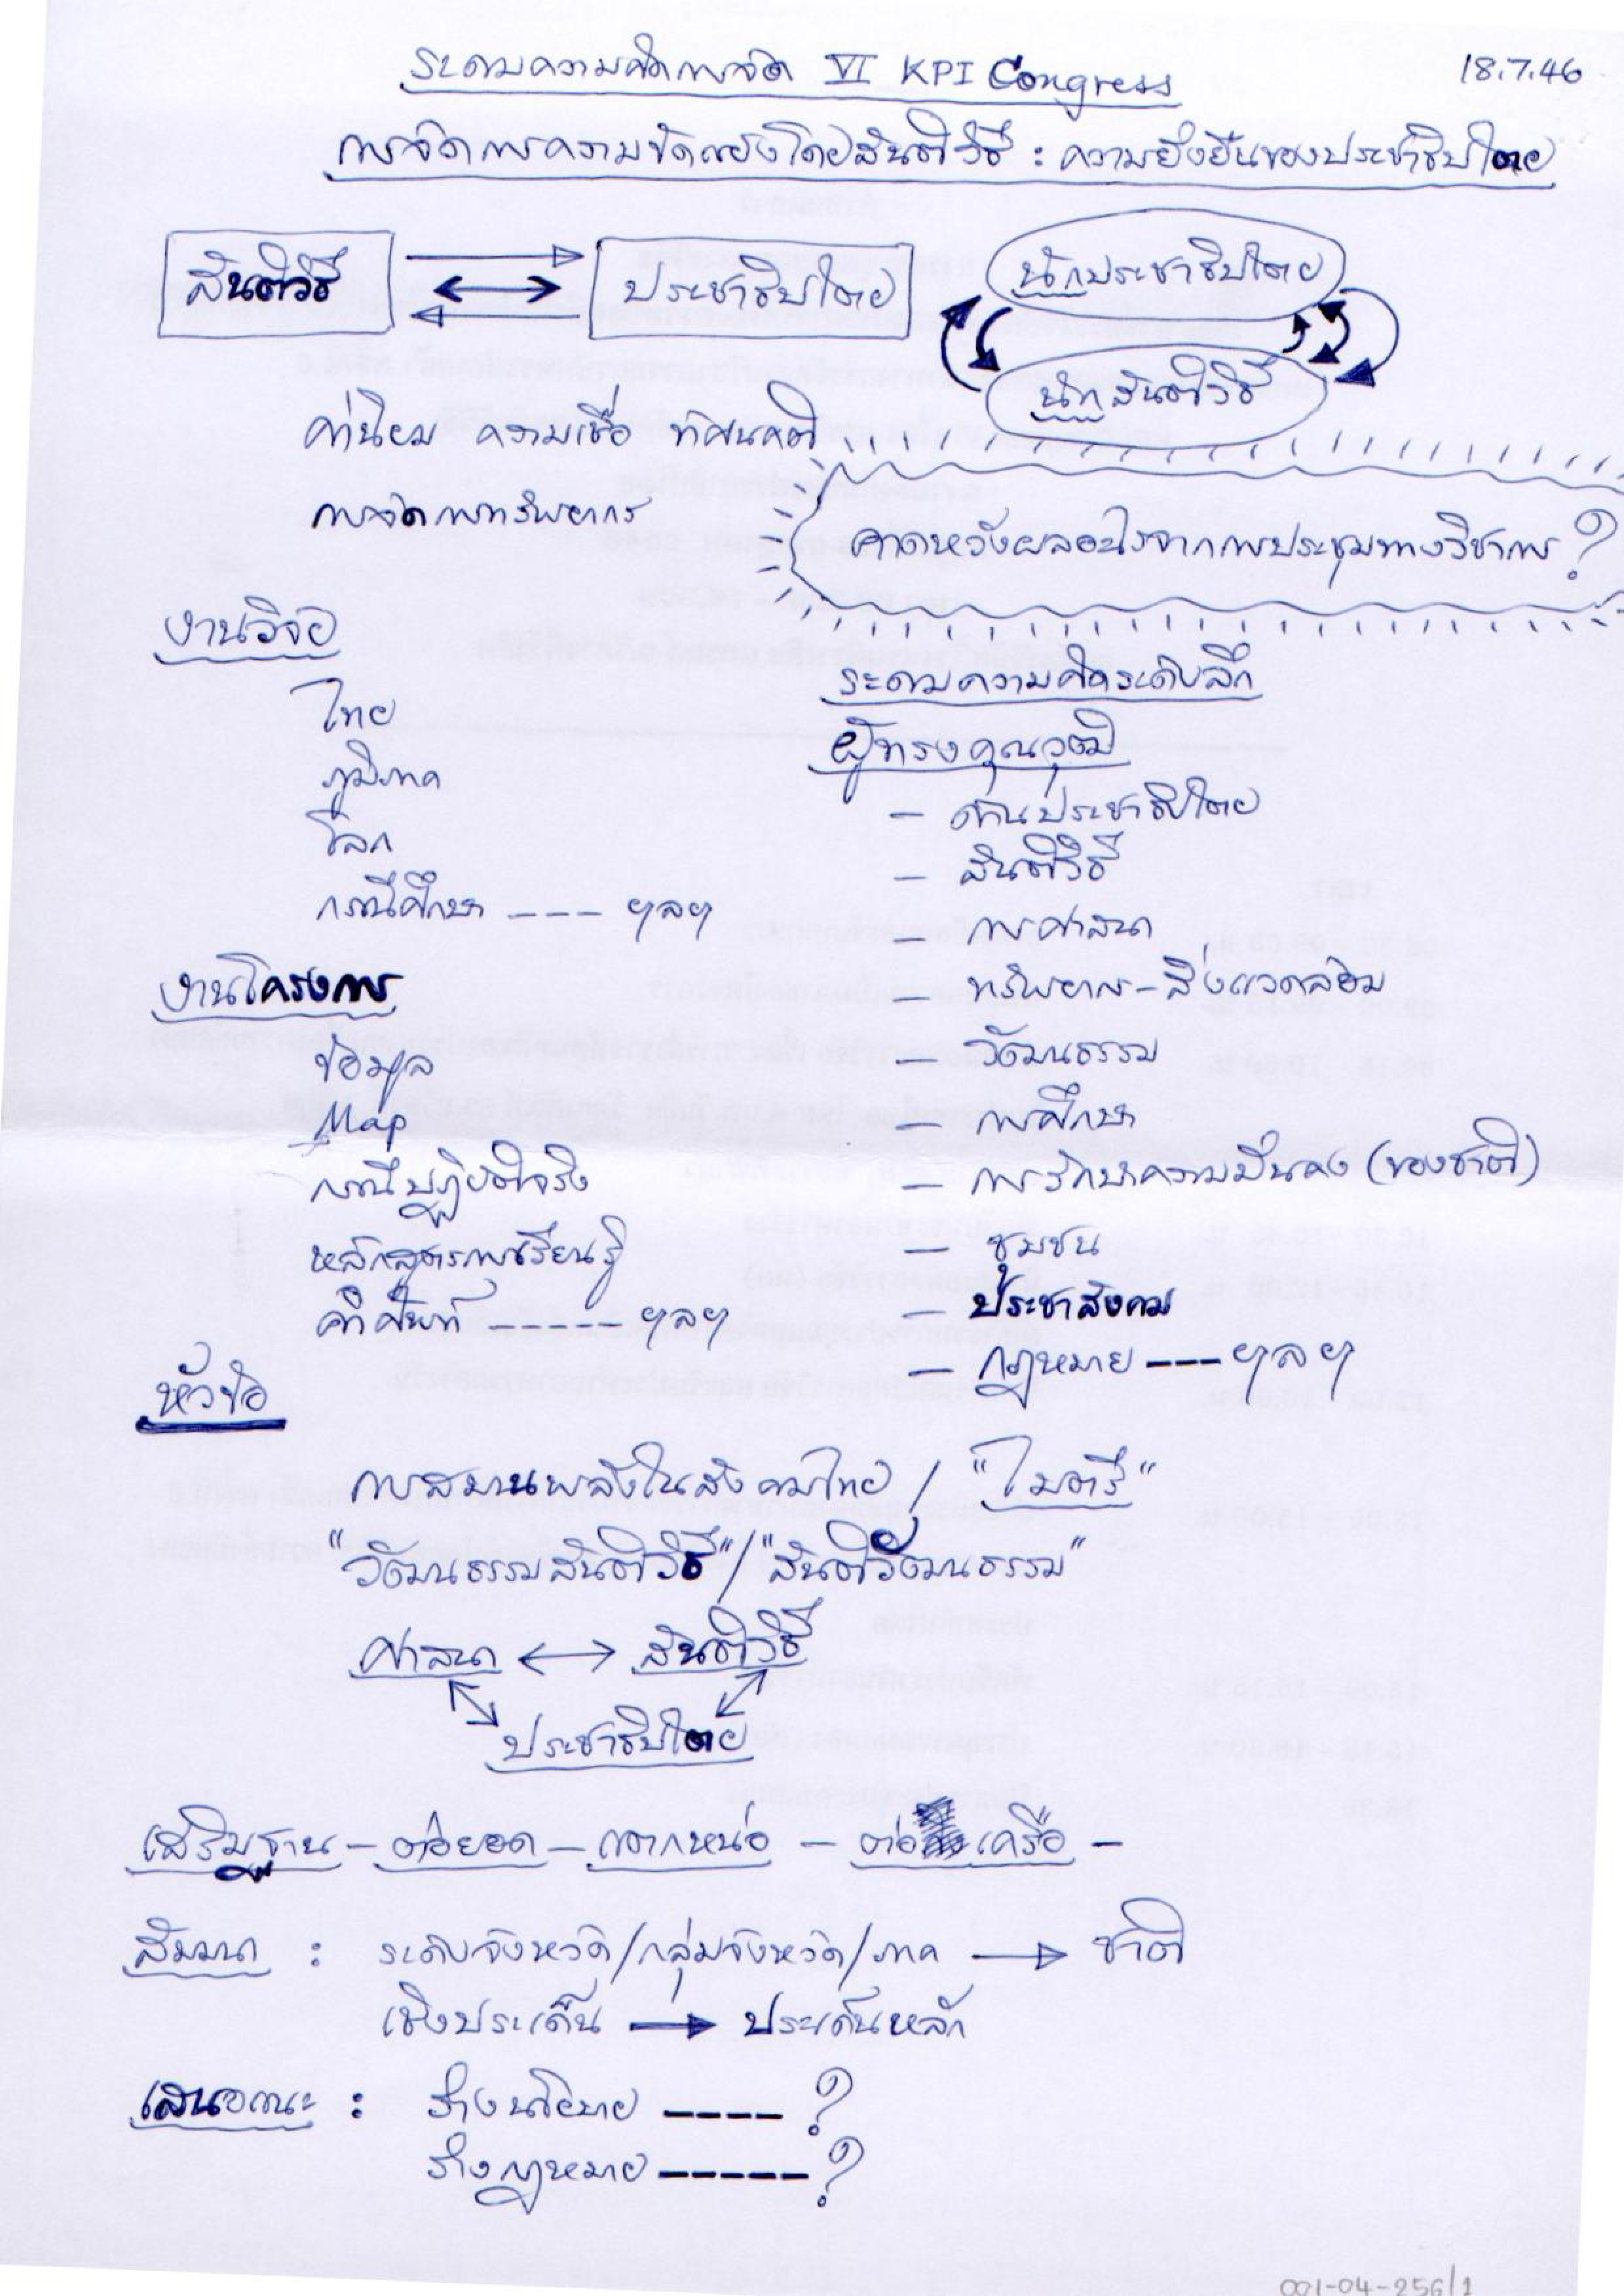 ระดมความคิดการจัด VI KPI Congress
18.7.46
การจัดการความขัดแย้งโดยสันติวิธี : ความยั่งยืนของประชาธิปไตย
สันติวิธี
ประชาธิปไตย
นักประชาธิปไตย
นักสันติวิธี
ค่านิยม ความเชื่อ ทัศนคติ
การจัดการทรัพยากร
คาดหวังผลอะไรจากการประชุมทางวิชาการ ?
งานวิจัย
ไทย
ภูมิภาค
โลก
กรณีศึกษา ---- ฯลฯ
งานโครงการ
ข้อมูล
Map
กรณีปฏิบัติจริง
หลักสูตรการเรียนรู้
คำศัพท์ ------ ฯลฯ
ระดมความคิดระดับลึก
ผู้ทรงคุณวุฒิ
- ด้านประชาธิปไตย
- สันติวิธี
- การศาสนา
ทรัพยากร-สิ่งแวดล้อม
- วัฒนธรรม
- การศึกษา
- การรักษาความมั่นคง (ของชาติ)
- ชุมชน
- ประชาสังคม
- กฎหมาย --- ฯลฯ
หัวข้อ
การสมานพลังในสังคมไทย / "ไมตรี"
"วัฒนธรรมสันติวิธี" / "สันติวัฒนธรรม"
ศาสนา ↔ สันติวิธี
ประชาธิปไตย
เสริมฐาน - ต่อยอด - แตกหน่อ - ต่อเครือ -
สัมมนา : ระดับจังหวัด/กลุ่มจังหวัด/ภาค → ชาติ
เชิงประเด็น → ประเด็นหลัก
เสนอแนะ : ร่างนโยบาย ---- ?
ร่างกฎหมาย ----- ?
001-04-256/1